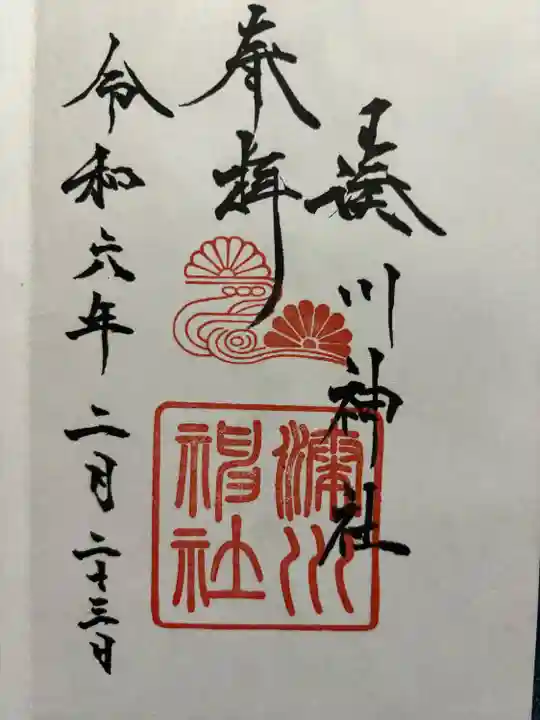 湊川神社
奉拝
令和六年二月二十三日
湊川
神社